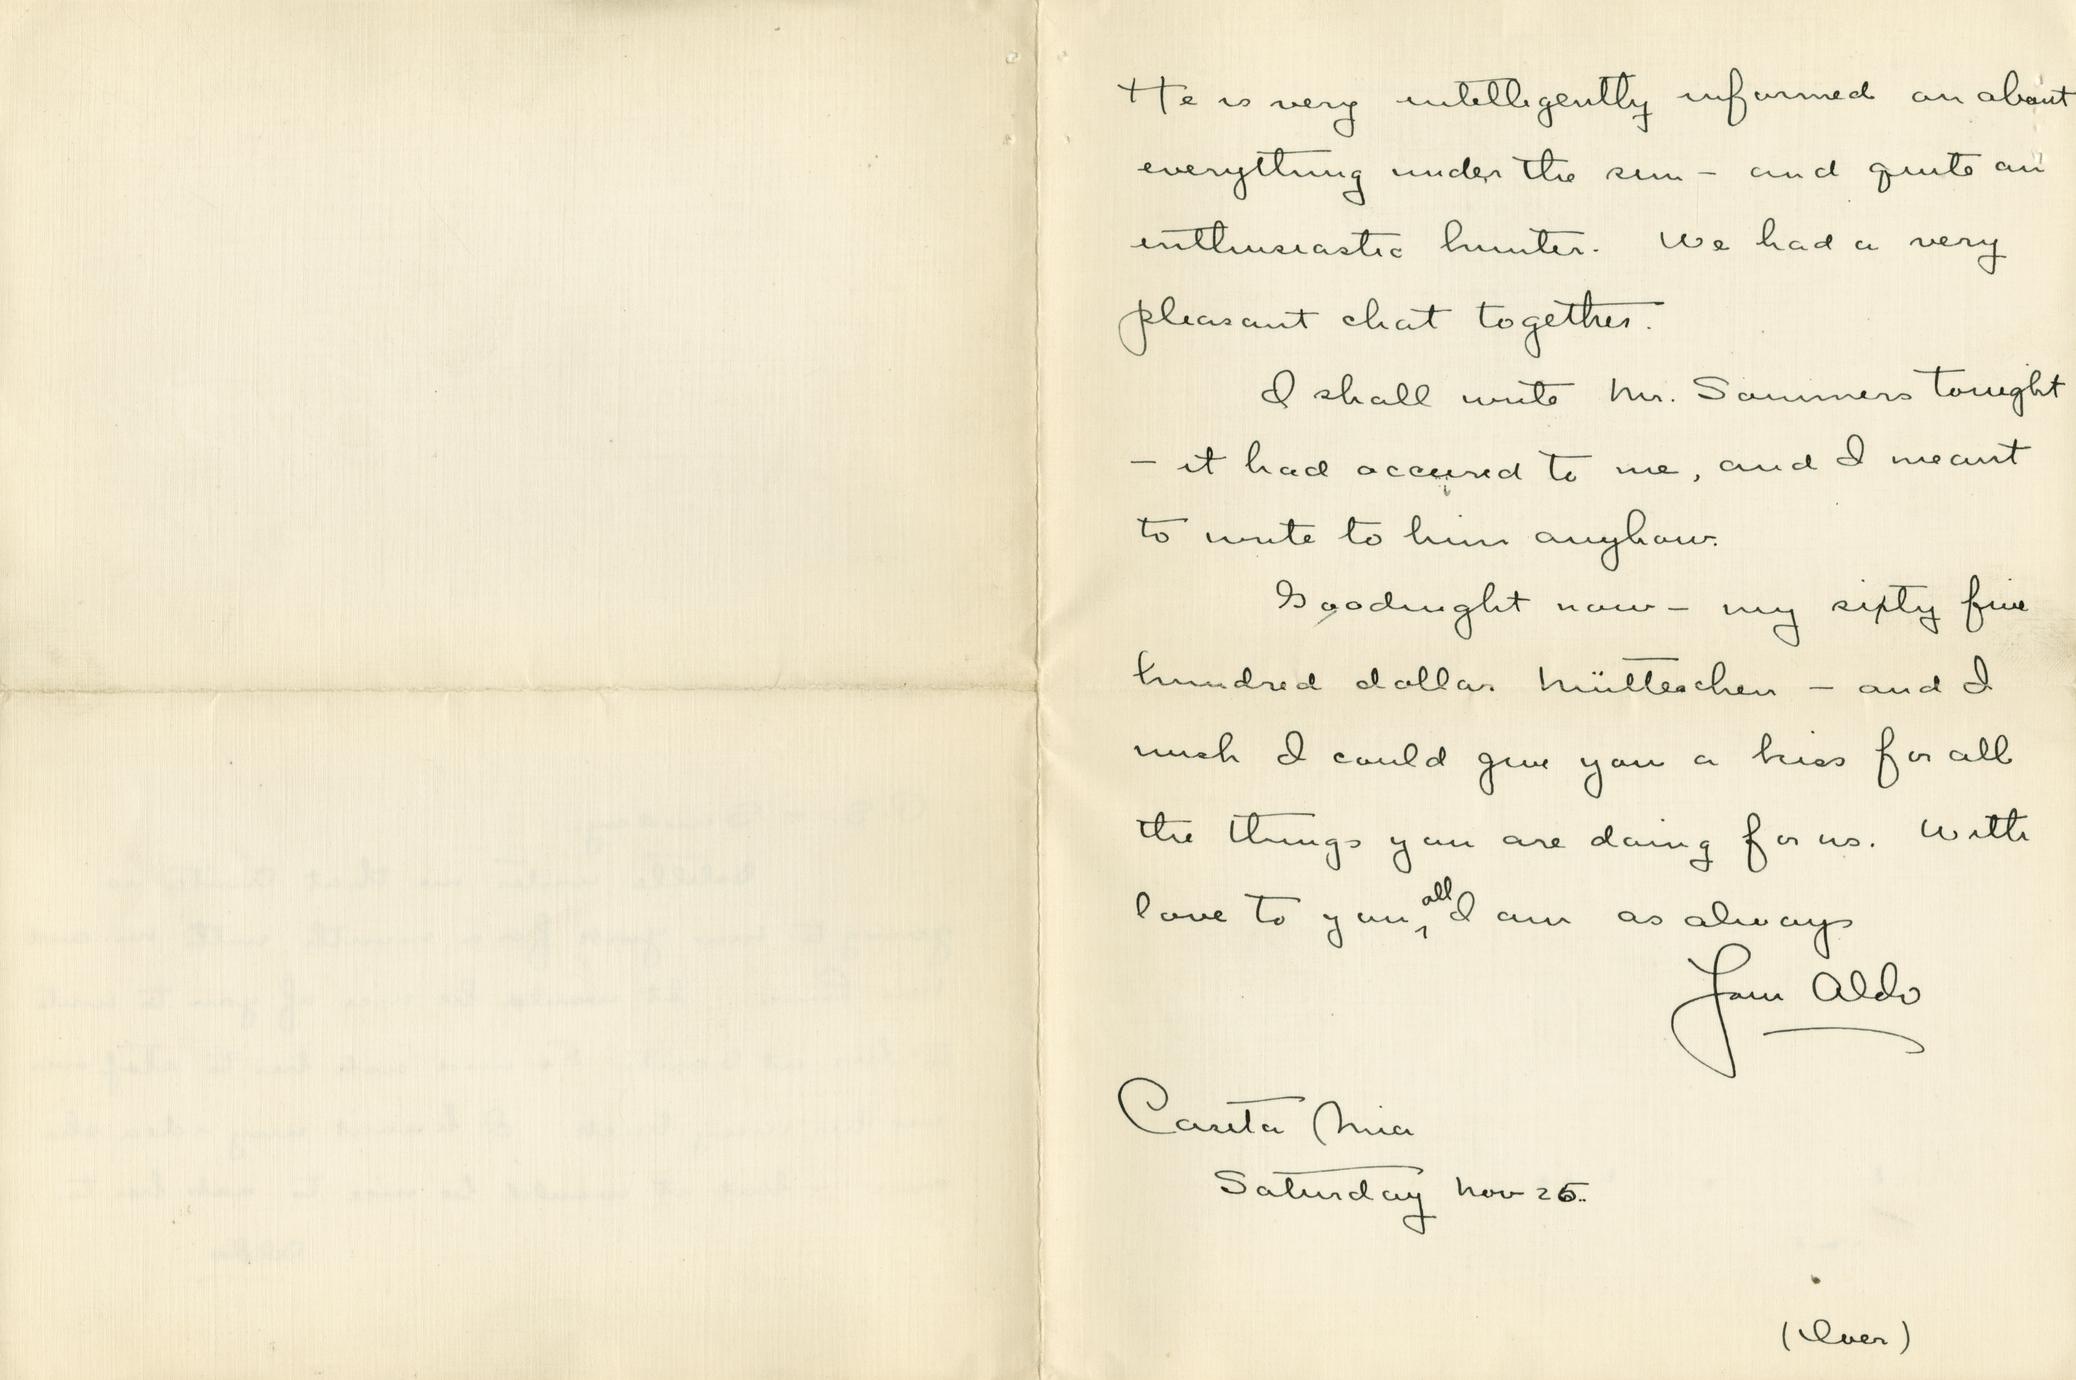 He is very intelligently informed on about
everything under the sun – and quite an
enthusiastic hunter. We had a very
pleasant chat together.
I shall write Mr. Sommers tonight
– it had occured to me, and I meant
to write to him anyhow.
Goodnight now – my sixty five
hundred dollar Mütterchen – and I
wish I could give you a kiss for all
the things you are doing for us. With
love to you all, I am as always
Your Aldo
Casita Mia
Saturday Nov 25.
(Over)